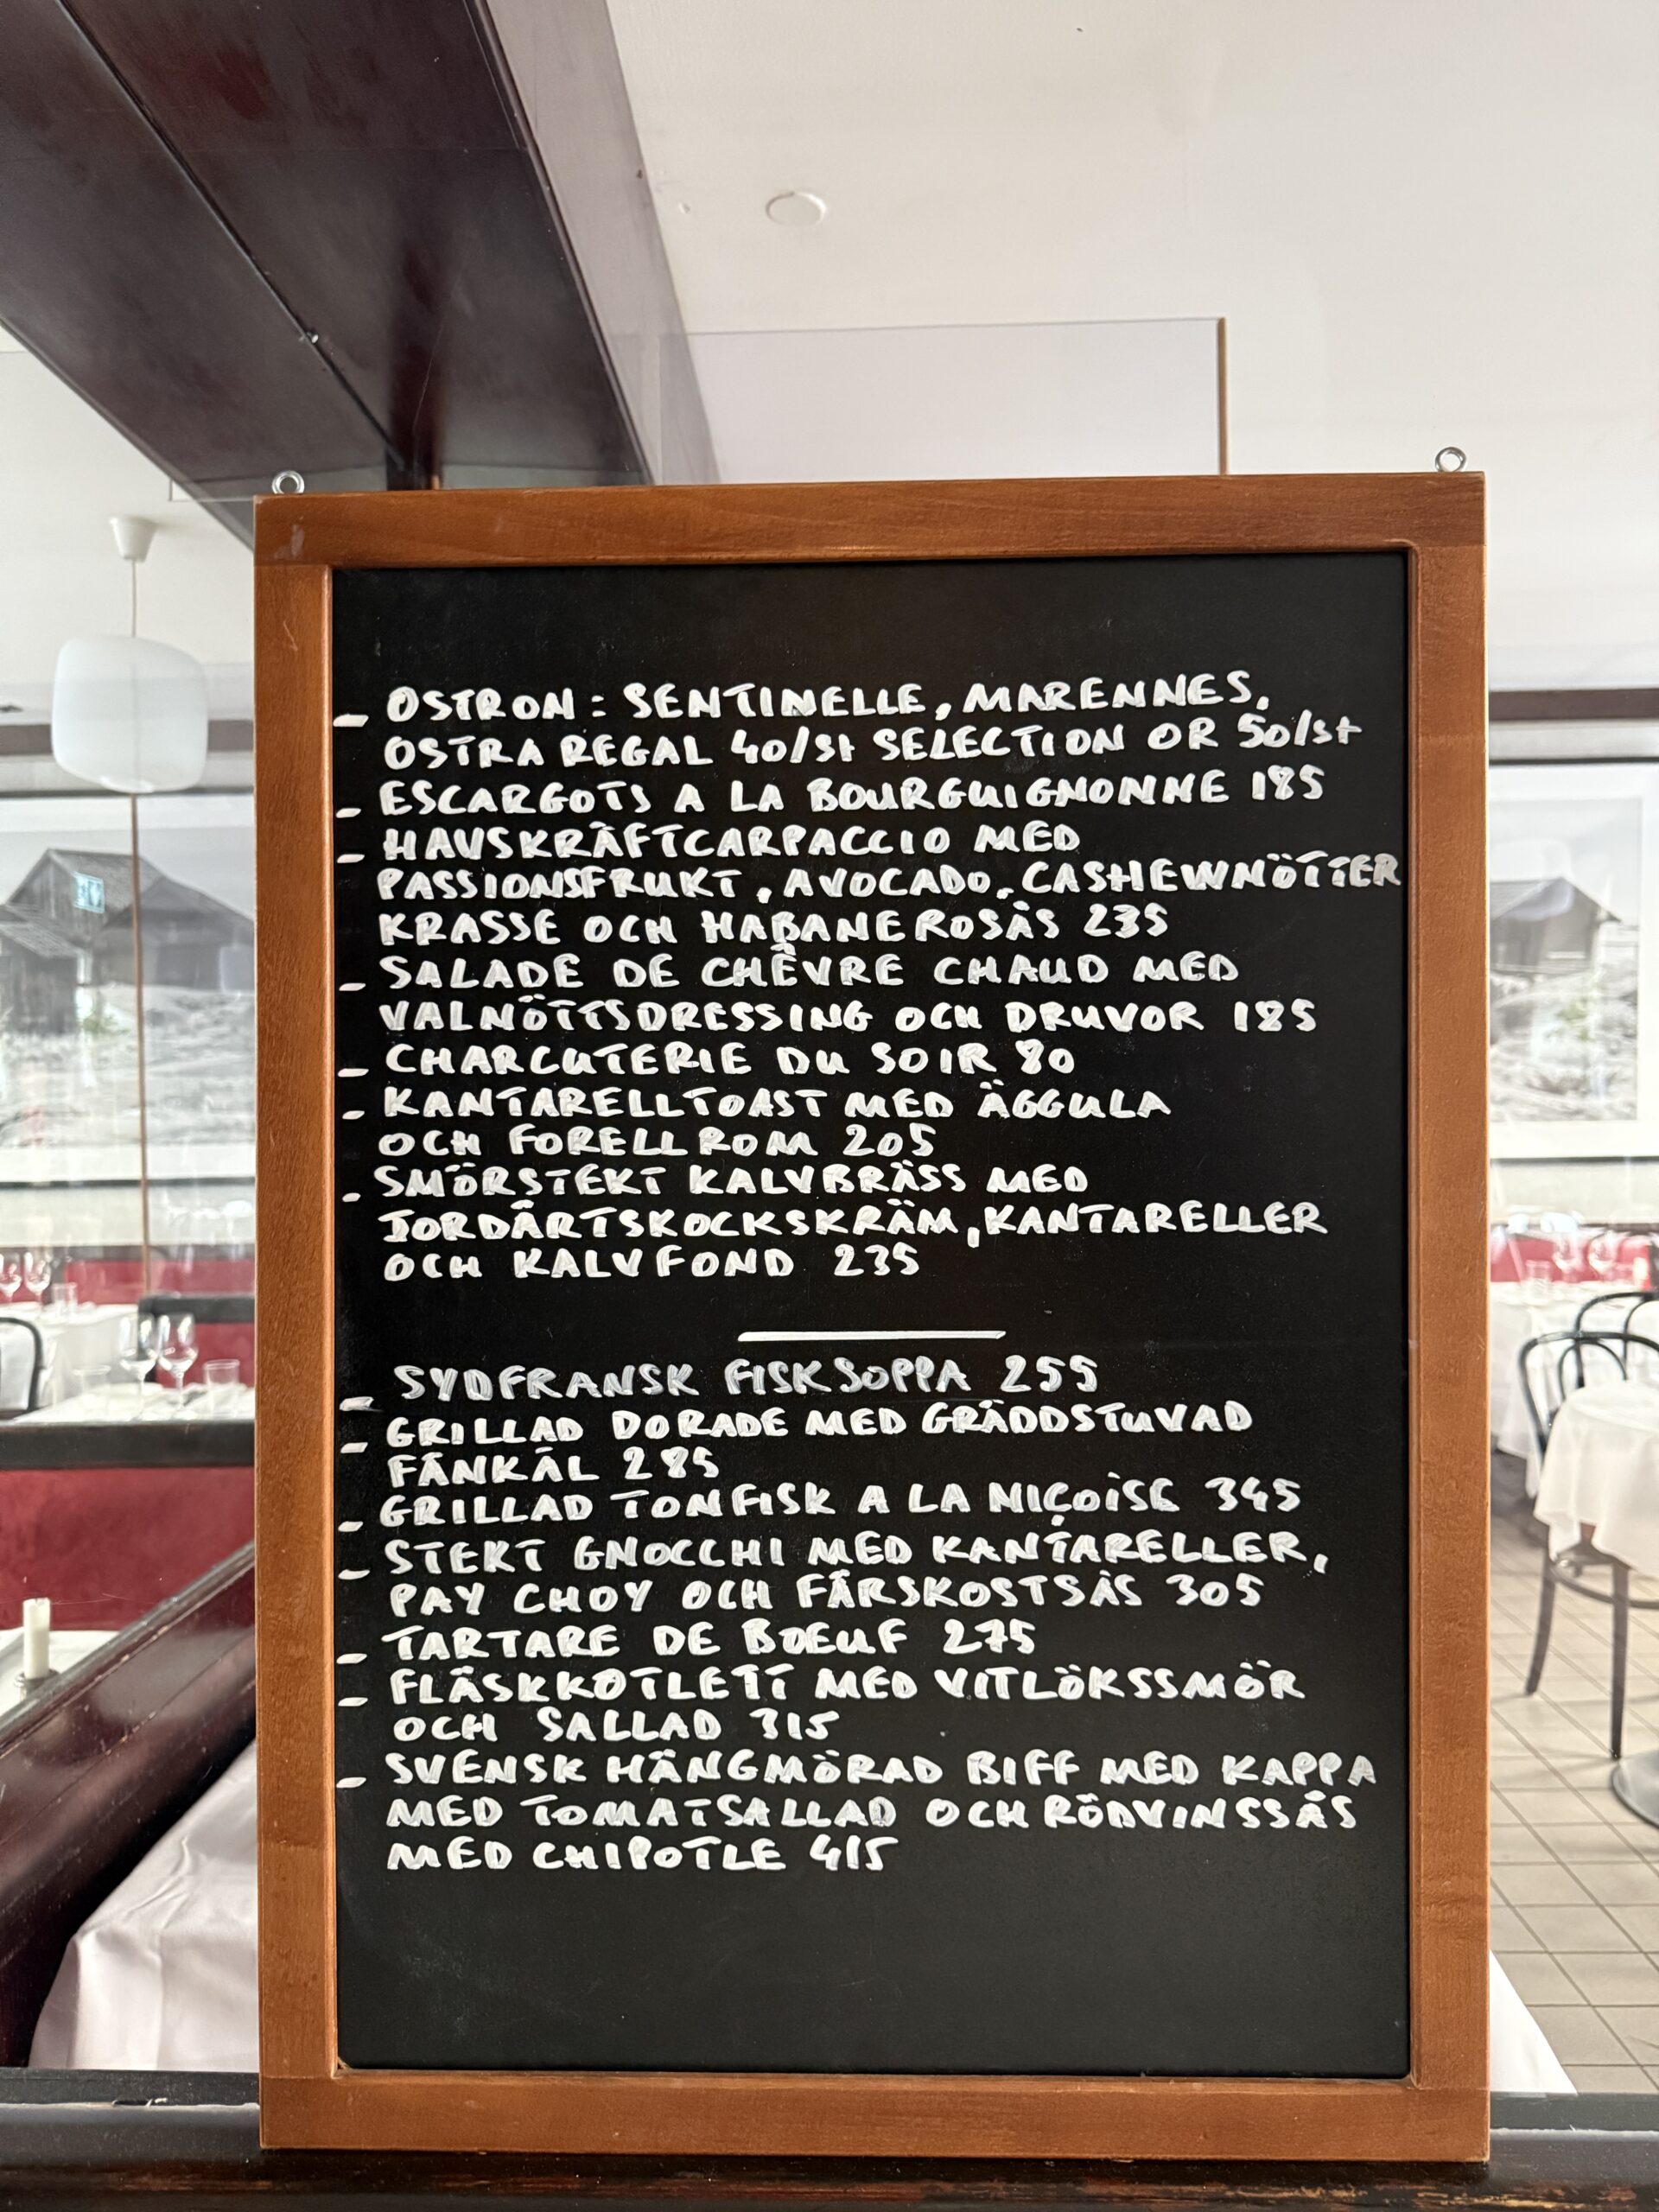 - OSTRON: SENTINELLE, MARENNES,
OSTRA REGAL 40/st SELECTION OR 50/st
- ESCARGOTS A LA BOURGUIGNONNE 185
- HAVSKRÄFTCARPACCIO MED
PASSIONSFRUKT, AVOCADO, CASHEWNÖTTER
KRASSE OCH HABANEROSÅS 235
- SALADE DE CHÊVRE CHAUD MED
VALNÖTTSDRESSING OCH DRUVOR 185
- CHARCUTERIE DU SOIR 80
- KANTARELLTOAST MED ÄGGULA
OCH FORELLROM 205
- SMÖRSTEKT KALVBRÄSS MED
JORDÄRTSKOCKSKRÄM, KANTARELLER
OCH KALVFOND 235
- SYDFRANSK FISKSOPPA 255
- GRILLAD DORADE MED GRÄDDSTUVAD
FÄNKÅL 285
- GRILLAD TONFISK A LA NIÇOISE 345
- STEKT GNOCCHI MED KANTARELLER,
PAY CHOY OCH FÄRSKOSTSÅS 305
- TARTARE DE BOEUF 275
- FLÄSKKOTLETT MED VITLÖKSSMÖR
OCH SALLAD 315
- SVENSK HÄNGMÖRAD BIFF MED KAPPA
MED TOMATSALLAD OCH RÖDVINSSÅS
MED CHIPOTLE 415